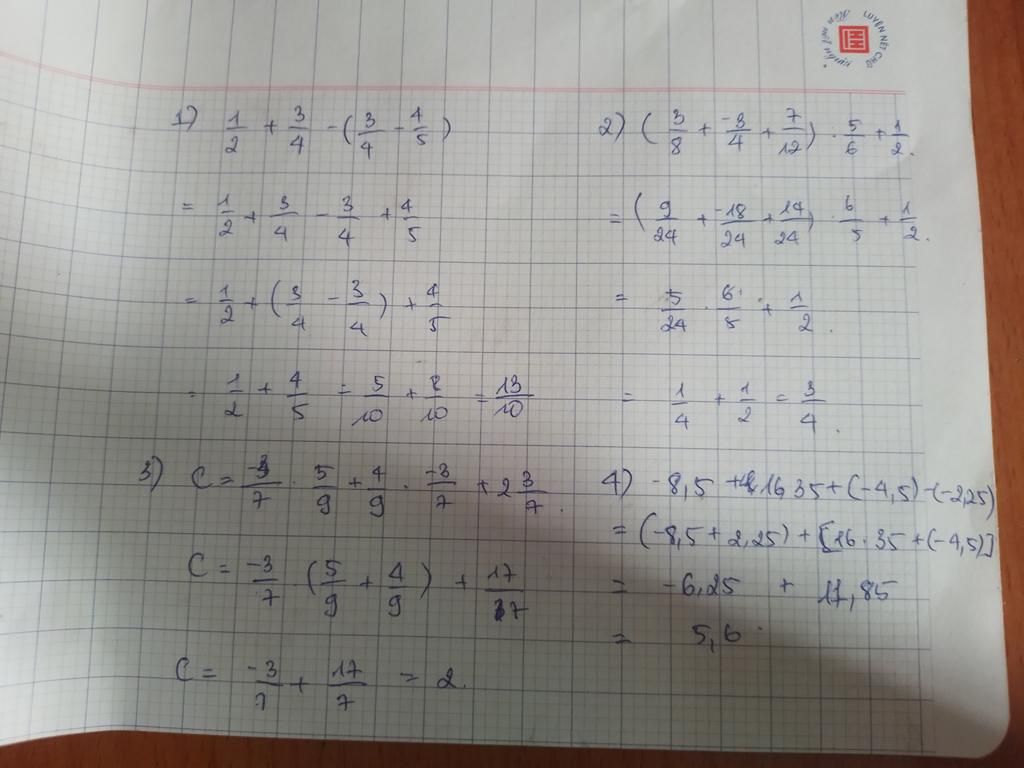 LUYỆN NÉT CHỮ
1) 1/2 + 3/4 - (3/4 - 4/5)
= 1/2 + 3/4 - 3/4 + 4/5
= 1/2 + (3/4 - 3/4) + 4/5
= 1/2 + 4/5 = 5/10 + 8/10 = 13/10
2) (3/8 + -3/4 + 7/12) . 5/6 + 1/2.
= (9/24 + -18/24 + 14/24) . 6/5 + 1/2.
= 5/24 . 6/5 + 1/2.
= 1/4 + 1/2 = 3/4.
3) C = -3/7 . 5/9 + 4/9 . -3/7 + 2 3/7.
C = -3/7 (5/9 + 4/9) + 17/7
C = -3/7 + 17/7 = 2.
4) -8,5 + 16,35 + (-4,5) - (-2,25)
= (-8,5 + 2,25) + [16.35 + (-4,5)]
= -6,25 + 11,85
= 5,6.